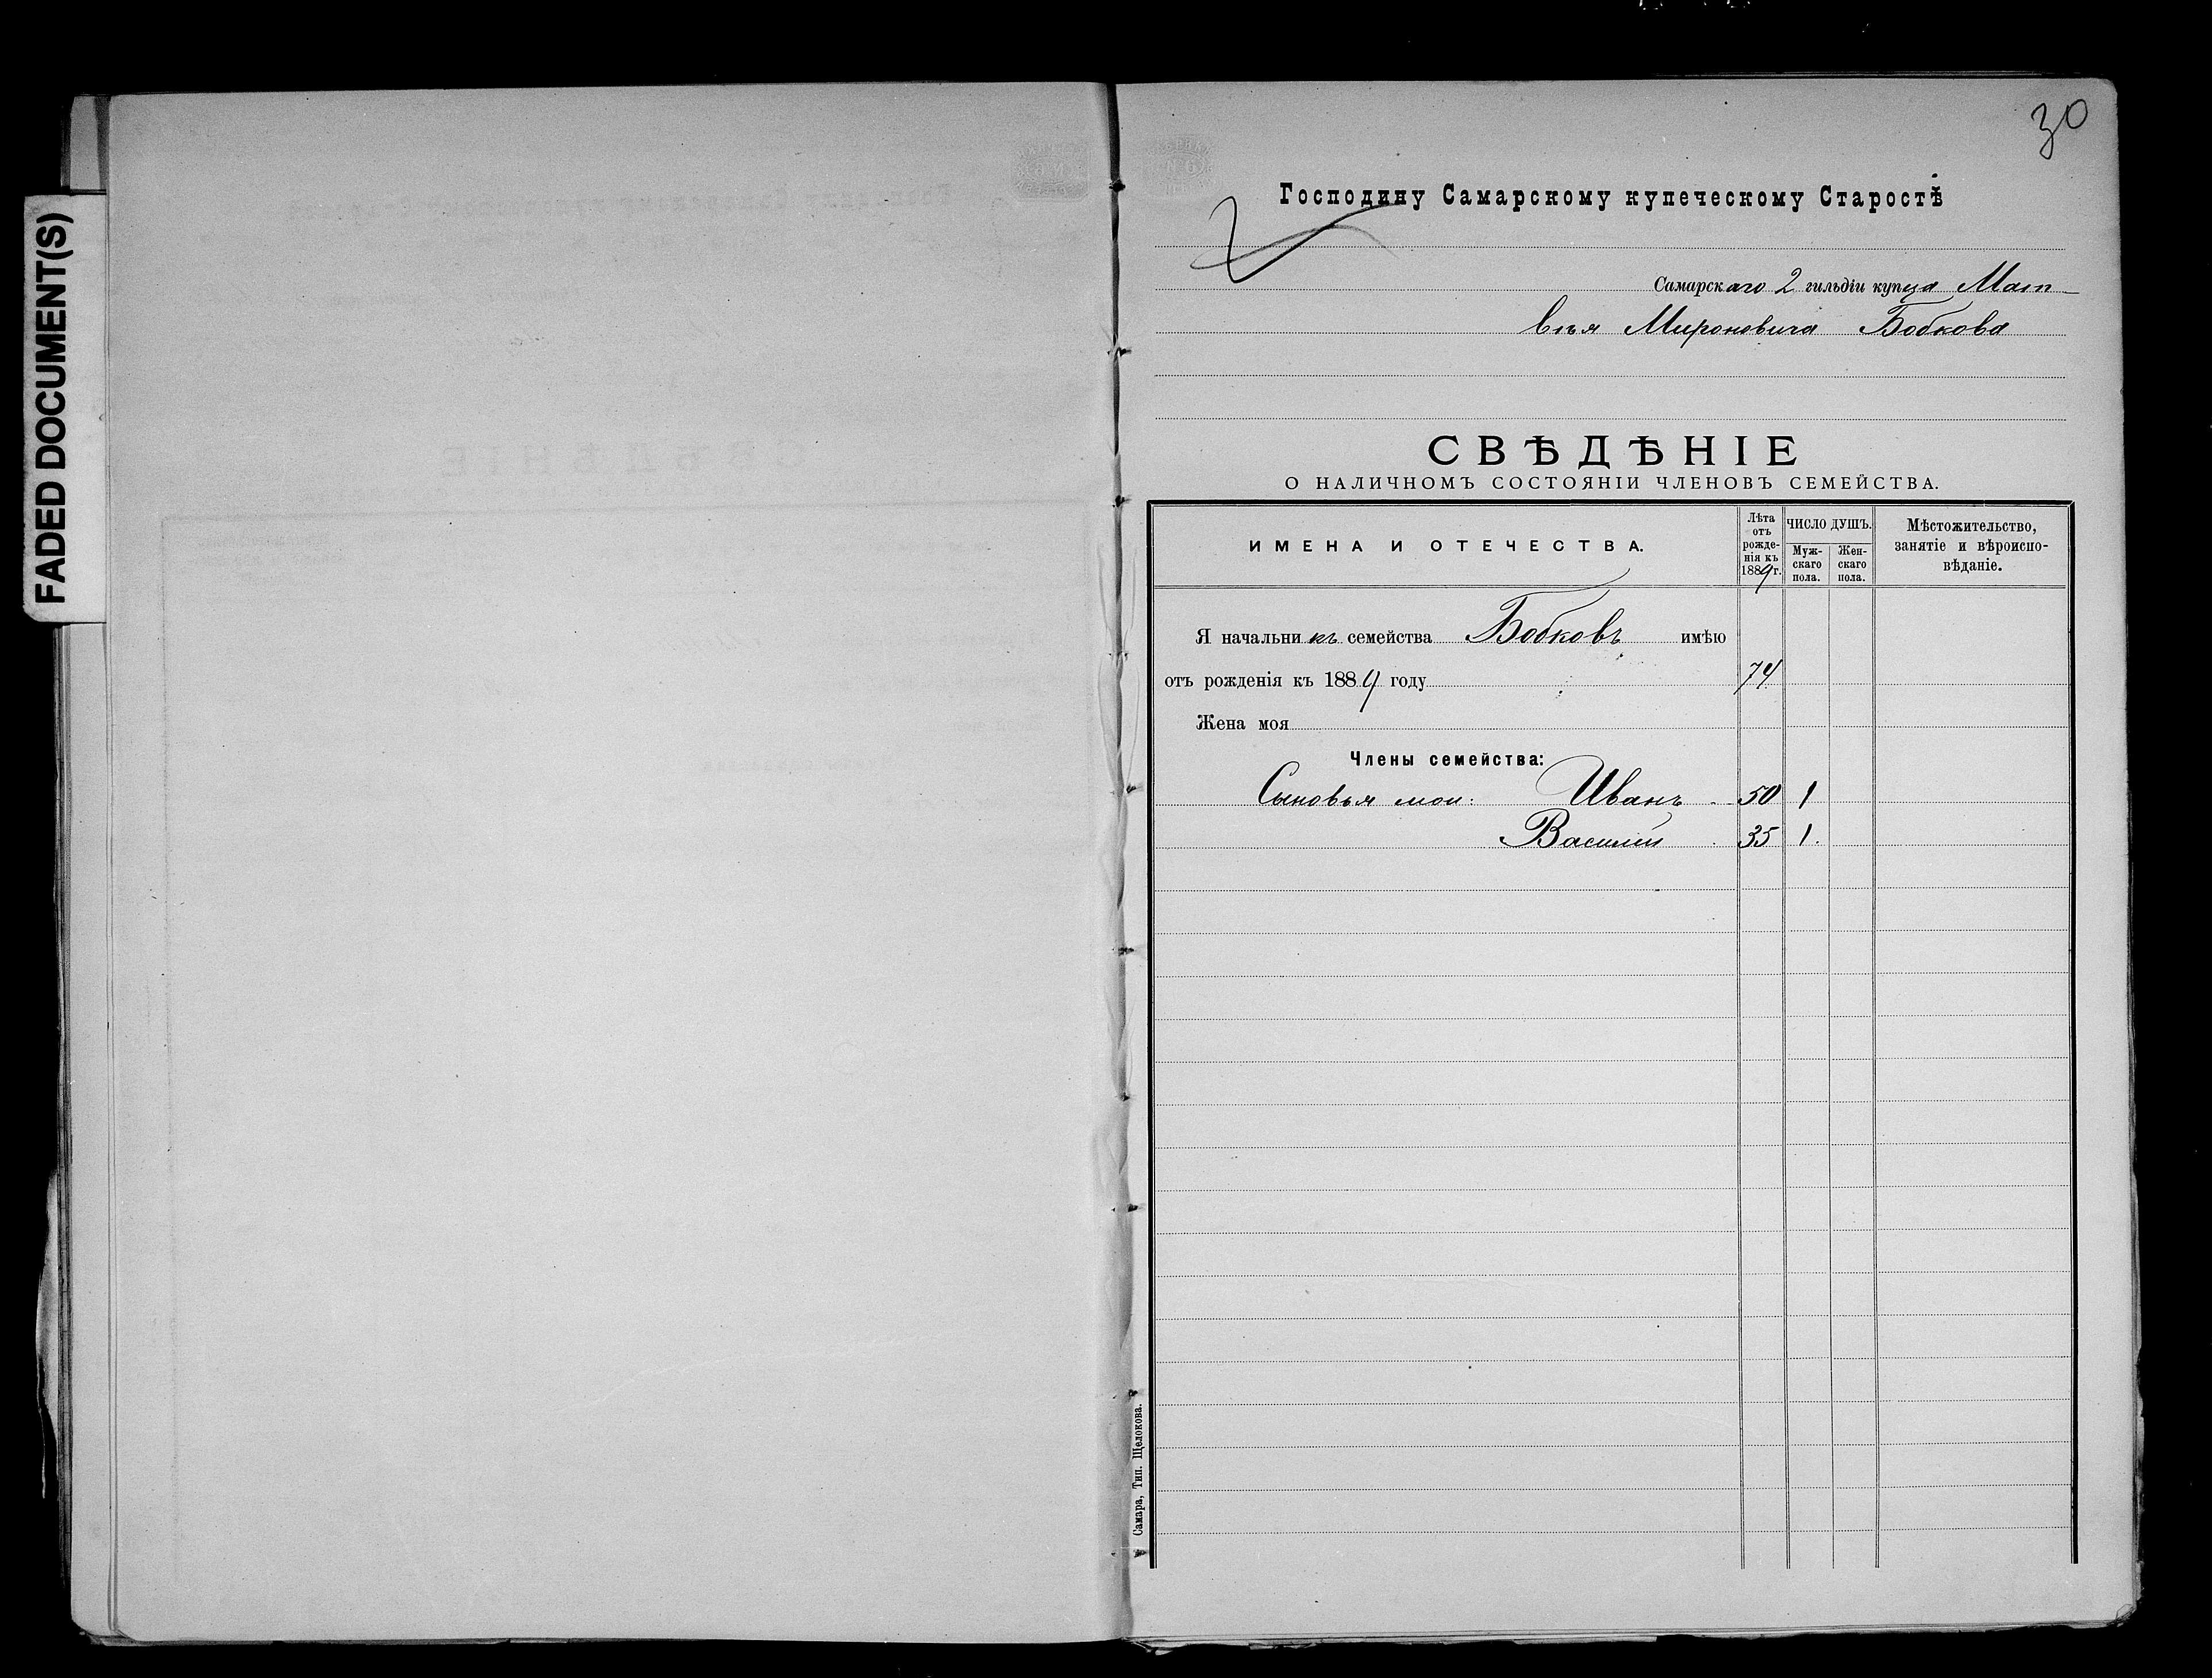 FADED DOCUMENT(S)
30
Господину Самарскому купеческому Старостѣ
Самарскаго 2 гильдіи купца Мат-
вѣя Мироновича Бобкова
СВѢДѢНІЕ
О НАЛИЧНОМЪ СОСТОЯНІИ ЧЛЕНОВЪ СЕМЕЙСТВА.
ИМЕНА И ОТЕЧЕСТВА.
Лѣта
отъ
рожде-
нія къ
1889 г.
ЧИСЛО ДУШЪ.
Муж-
скаго
пола.
Жен-
скаго
пола.
Мѣстожительство,
занятіе и вѣроиспо-
вѣданіе.
Я начальникъ семейства Бобковъ имѣю
отъ рожденія къ 1889 году 74
Жена моя
Члены семейства:
Сыновья мои: Иванъ 50 1
Василій 35 1.
Самара, Тип. Щелокова.